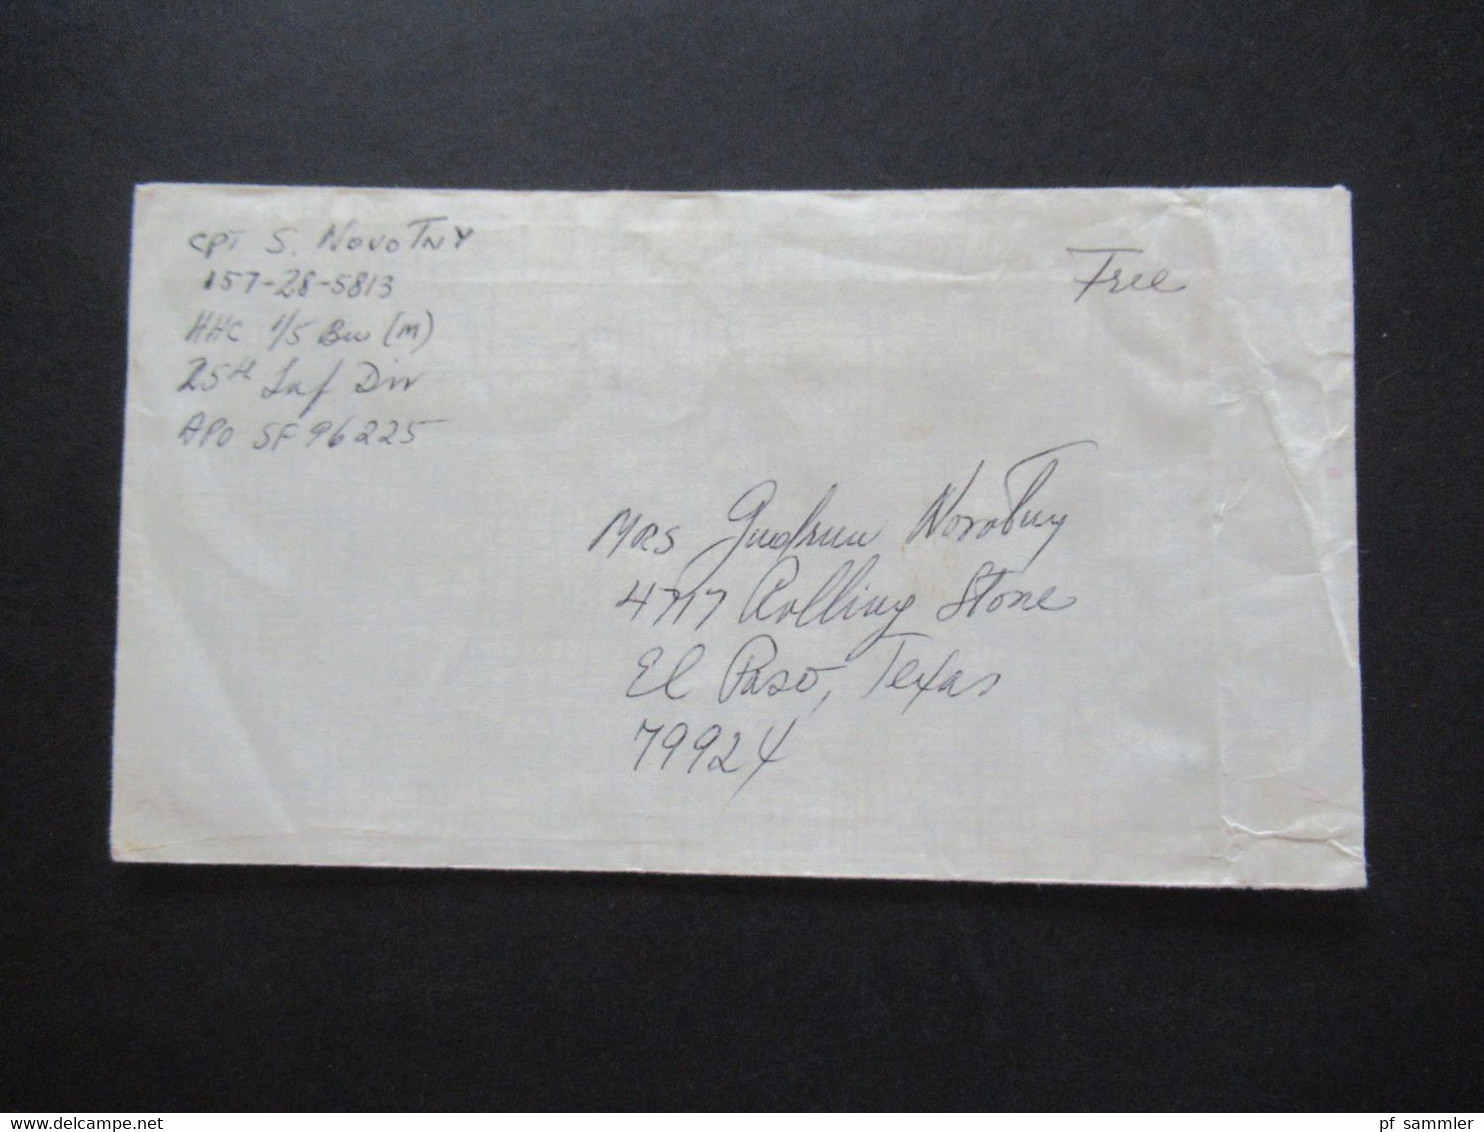 CPT S. NOVOTNY
157-28-5813
HHC 1/5 Bn (M)
25th Inf Div
APO SF 96225
Free
MRS Gudrun Novotny
4717 Rolling Stone
El Paso, Texas
79924
www.delcampe.net
pf_sammler